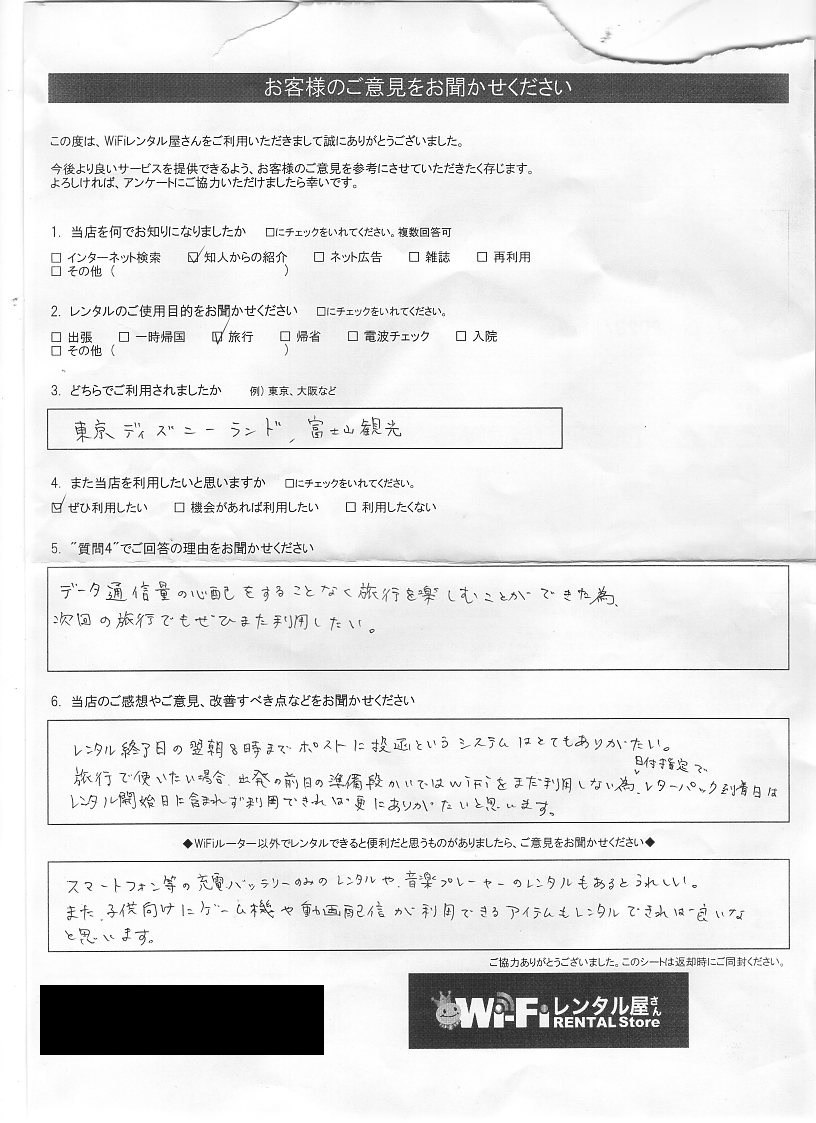 お客様のご意見をお聞かせください
この度は、WiFiレンタル屋さんをご利用いただきまして誠にありがとうございました。
今後より良いサービスを提供できるよう、お客様のご意見を参考にさせていただきたく存じます。
よろしければ、アンケートにご協力いただけましたら幸いです。
1. 当店を何でお知りになりましたか □にチェックをいれてください。複数回答可
□ インターネット検索 ☑ 知人からの紹介 □ ネット広告 □ 雑誌 □ 再利用
□ その他 ( )
2. レンタルのご使用目的をお聞かせください □にチェックをいれてください。
□ 出張 □ 一時帰国 ☑ 旅行 □ 帰省 □ 電波チェック □ 入院
□ その他 ( )
3. どちらでご利用されましたか 例) 東京、大阪など
東京ディズニーランド、富士山観光
4. また当店を利用したいと思いますか □にチェックをいれてください。
☑ ぜひ利用したい □ 機会があれば利用したい □ 利用したくない
5. "質問4"でご回答の理由をお聞かせください
データ通信量の心配をすることなく旅行を楽しむことができた為、
次回の旅行でもぜひまた利用したい。
6. 当店のご感想やご意見、改善すべき点などをお聞かせください
レンタル終了日の翌朝8時までポストに投函というシステムはとてもありがたい。
旅行で使いたい場合、出発の前日の準備段かいではWiFiをまだ利用しない為、日付指定でレターパック到着日は
レンタル開始日に含まれず利用できれば更にありがたいと思います。
◆WiFiルーター以外でレンタルできると便利だと思うものがありましたら、ご意見をお聞かせください◆
スマートフォン等の充電バッテリーのみのレンタルや、音楽プレーヤーのレンタルもあるとうれしい。
また、子供向けにゲーム機や動画配信が利用できるアイテムもレンタルできれば良いな
と思います。
ご協力ありがとうございました。このシートは返却時にご同封ください。
Wi-Fiレンタル屋さん
RENTAL Store